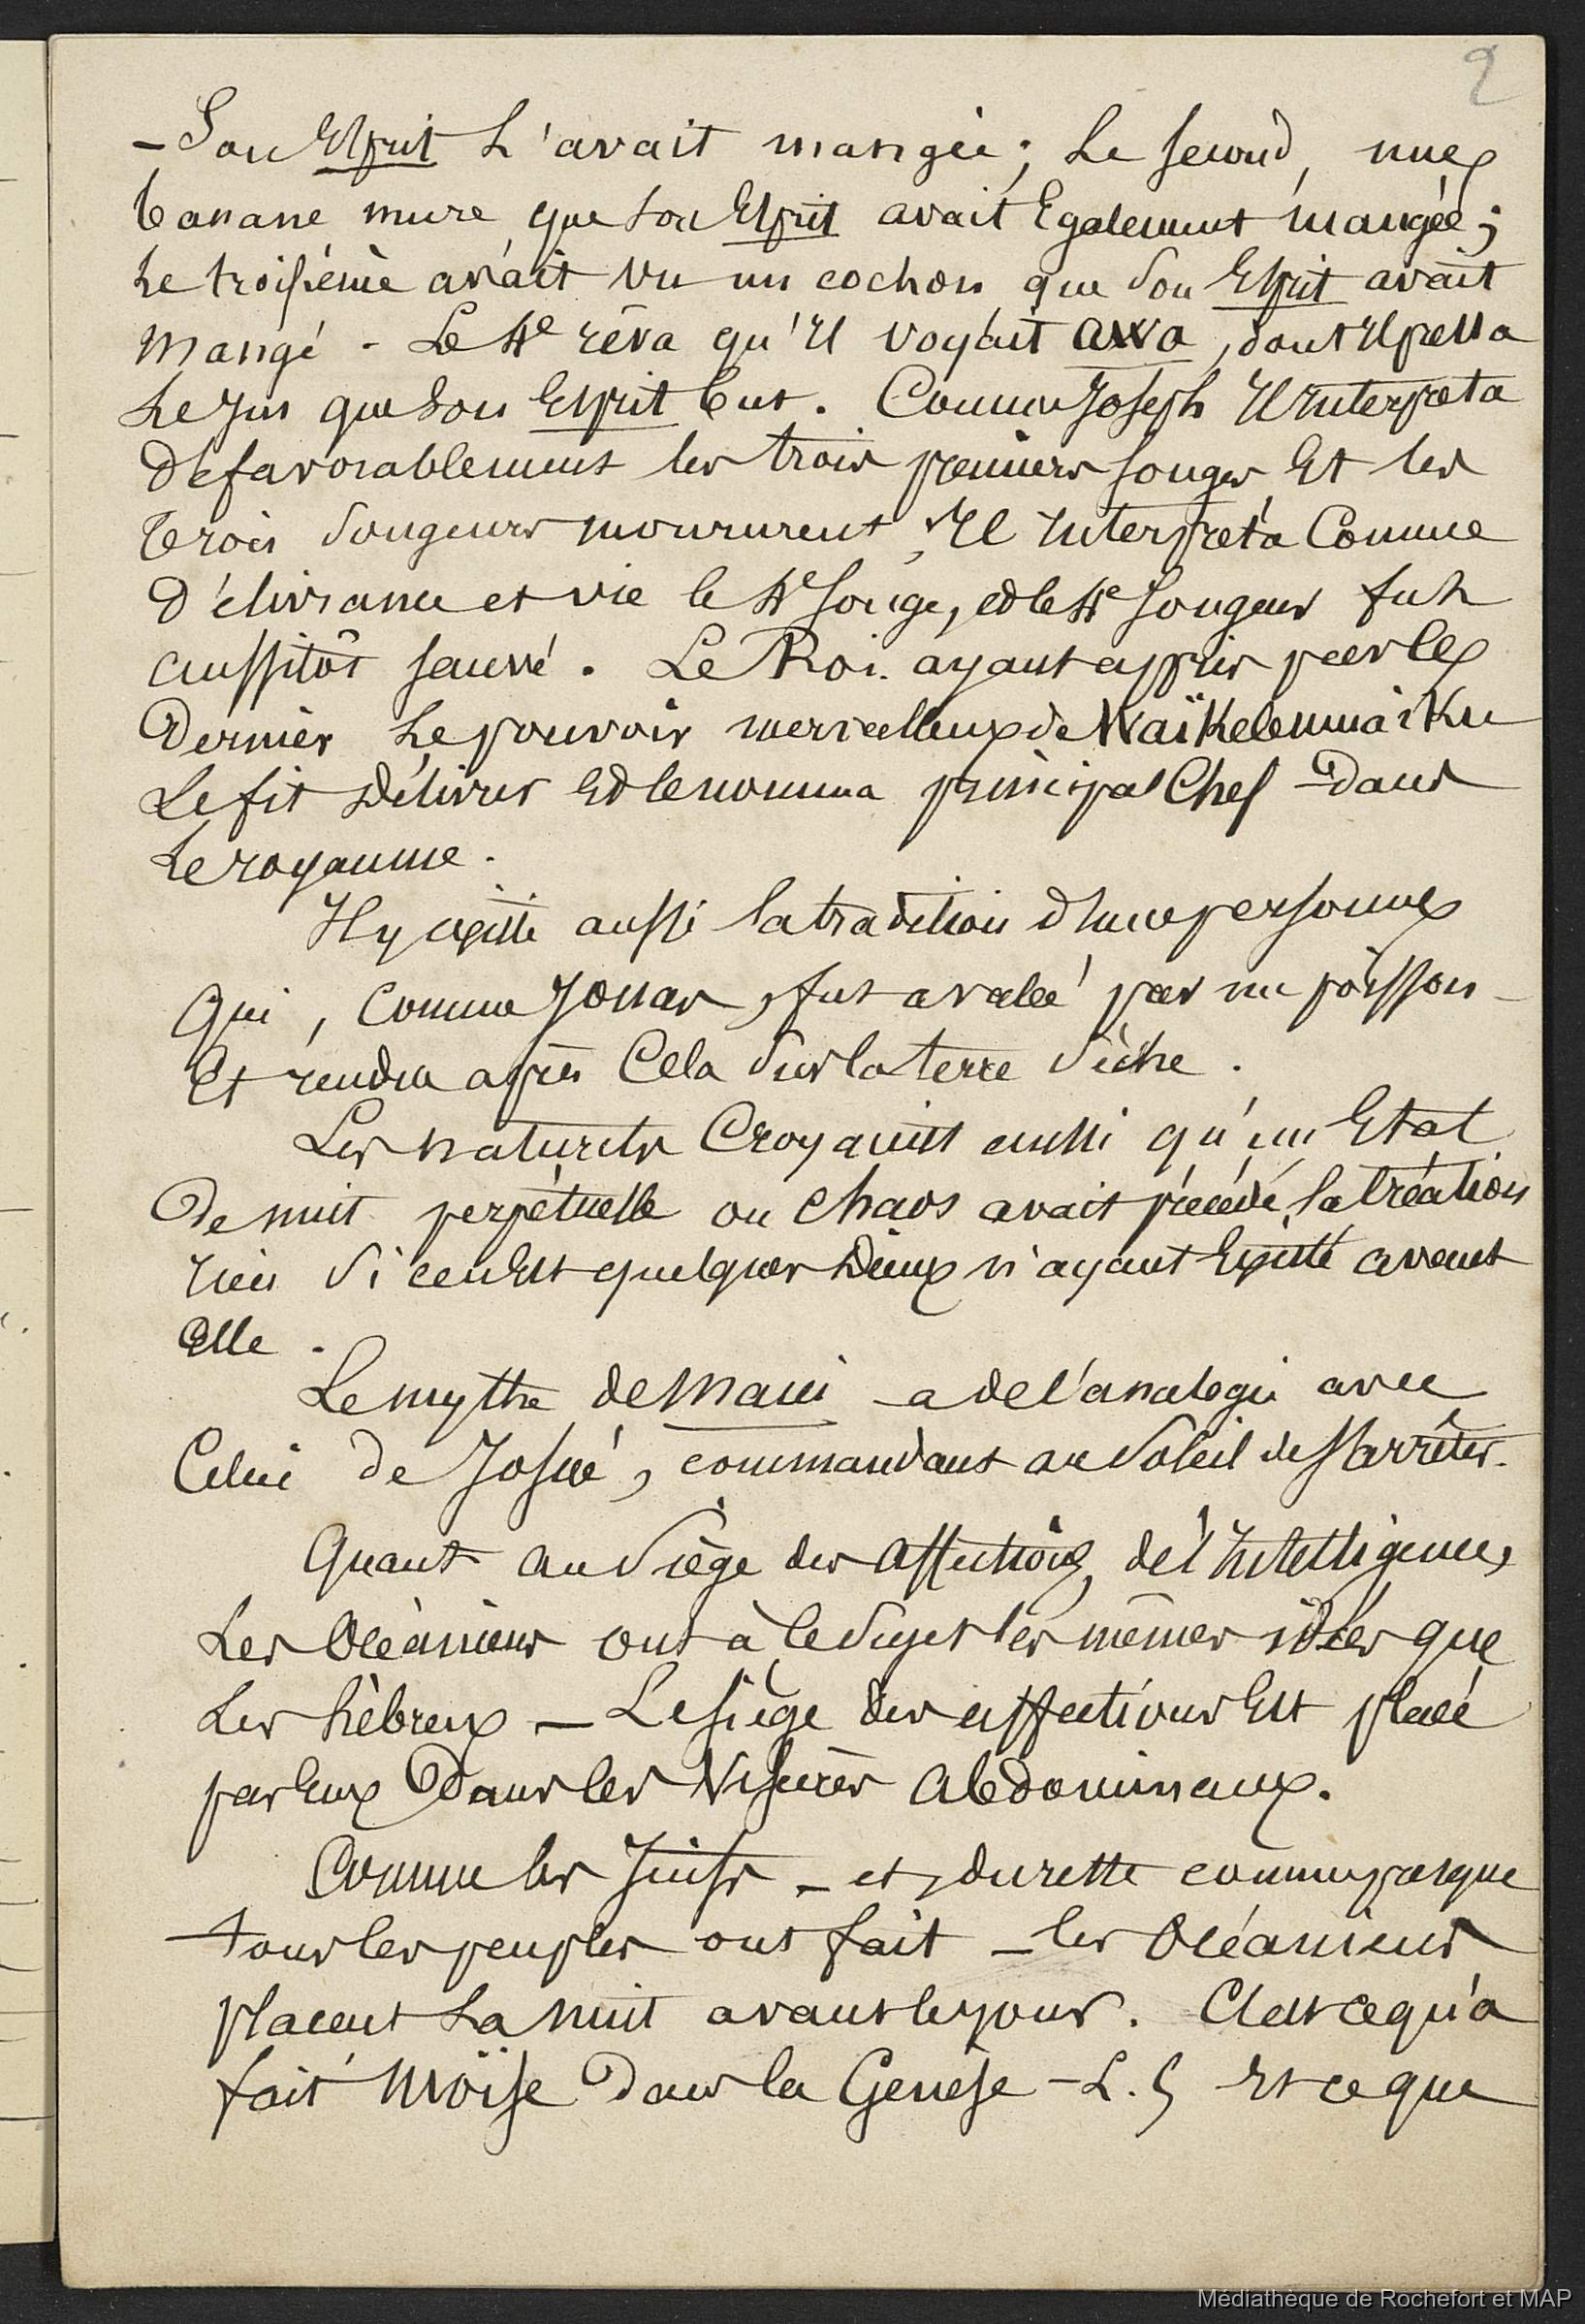 2
- Son Esprit L'avait mangée; Le second, une
banane mure que son Esprit avait Egalement mangée;
Le troisième avait vu un cochon que son Esprit avait
mangé - Le 4e rêva qu'Il voyait awa, dont Il pressa
Le Jus que son Esprit but. Comme Joseph Il Interpreta
défavorablement les trois premiers songes Et les
trois songeurs moururent, Il Interpreta Comme
Délivrance et vie le 4e songe, et le 4e songeur fut
aussitôt sauvé. Le Roi ayant appris par le
Dernier Le pouvoir merveilleux de Waïkelenuiaiku
Le fit Délivrer et le nomma principal Chef Dans
Le royaume.
Il y existe aussi la tradition d'une personne
qui, comme Jonas, fut avalée par un poisson -
Et rendue après Cela sur la terre sèche.
Les naturels Croyaient aussi qu'un Etat
De nuit perpétuelle ou Chaos avait précédé la Création
rien si ce n'Est quelques Dieux n'ayant Existé avant
Elle.
Le mythe de Maui a de l'analogie avec
Celui de Josué, commandant au Soleil de s'arrêter.
Quant au Siège des affections, de l'Intelligence,
Les Océaniens ont à ce Sujet les mêmes idées que
Les hèbreux - Le siège des affections Est placé
par Eux Dans les Viscères abdominaux.
Comme les Juifs - et, du reste comme presque
tous les peuples ont fait - les Océaniens
placent La nuit avant le jour. C'est ce qu'a
fait Moïse Dans la Genèse - L. 5 Et ce que
Médiathèque de Rochefort et MAP